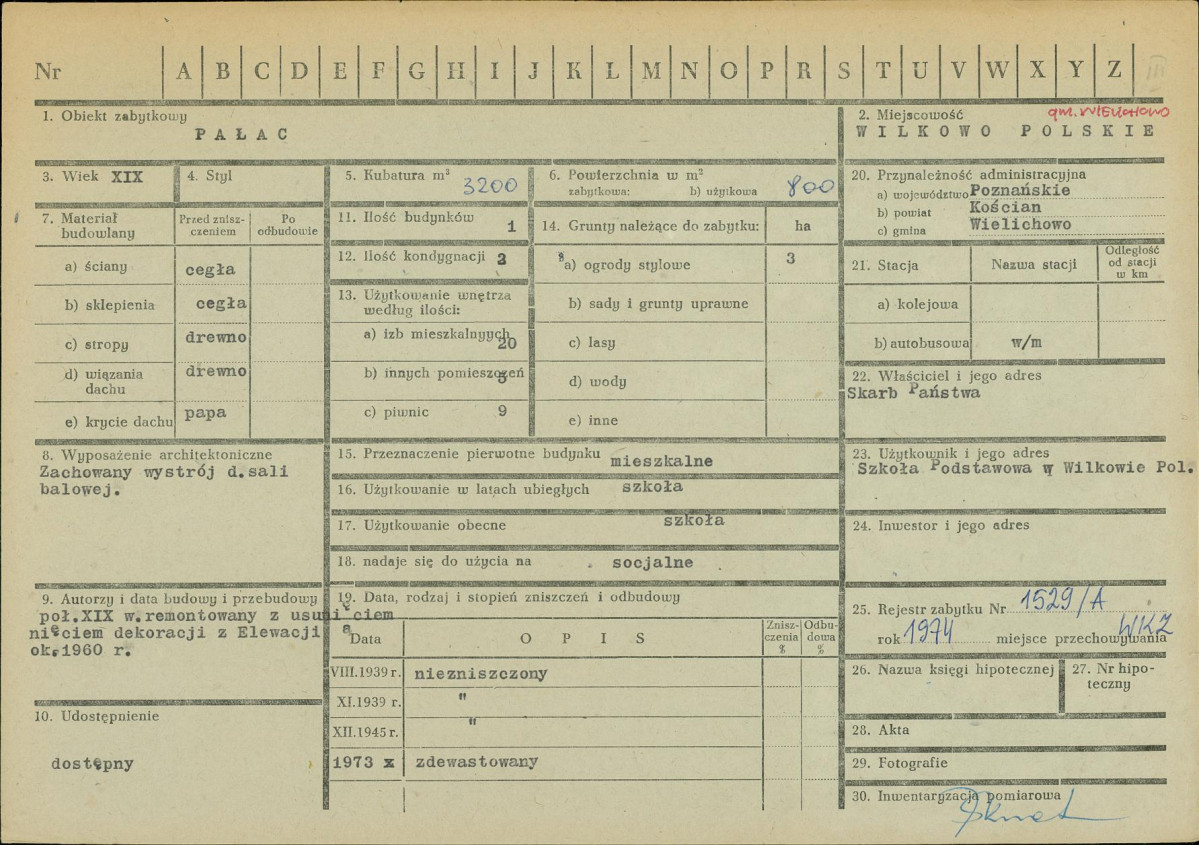 Nr A B C D E F G H I J K L M N O P R S T U V W X Y Z III
1. Obiekt zabytkowy
PAŁAC
2. Miejscowość gm. WIELICHOWO
WILKOWO POLSKIE
3. Wiek XIX
4. Styl
5. Kubatura m³ 3200
6. Powierzchnia w m²
zabytkowa: b) użytkowa 800
20. Przynależność administracyjna
a) województwo Poznańskie
b) powiat Kościan
c) gmina Wielichowo
7. Materiał budowlany
Przed zniszczeniem
Po odbudowie
a) ściany cegła
b) sklepienia cegła
c) stropy drewno
d) wiązania dachu drewno
e) krycie dachu papa
11. Ilość budynków 1
12. Ilość kondygnacji 3
13. Użytkowanie wnętrza
według ilości:
a) izb mieszkalnyych 20
b) innych pomieszczeń
c) piwnic 9
14. Grunty należące do zabytku: ha
a) ogrody stylowe 3
b) sady i grunty uprawne
c) lasy
d) wody
e) inne
21. Stacja
Nazwa stacji
Odległość
od stacji
w km
a) kolejowa
b) autobusowa w/m
22. Właściciel i jego adres
Skarb Państwa
8. Wyposażenie architektoniczne
Zachowany wystrój d.sali
balowej.
15. Przeznaczenie pierwotne budynku mieszkalne
16. Użytkowanie w latach ubiegłych szkoła
17. Użytkowanie obecne szkoła
18. nadaje się do użycia na . socjalne
23. Użytkownik i jego adres
Szkoła Podstawowa w Wilkowie Pol.
24. Inwestor i jego adres
9. Autorzy i data budowy i przebudowy
poł.XIX w.remontowany z usunięciem
nięciem dekoracji z Elewacji
ok.1960 r.
10. Udostępnienie
dostępny
19. Data, rodzaj i stopień zniszczeń i odbudowy
Data
OPIS
Zniszczenia %
Odbudowa %
VIII.1939 r. niezniszczony
XI.1939 r. "
XII.1945 r. "
1973 x zdewastowany
25. Rejestr zabytku Nr 1529/A
rok 1974 miejsce przechowywania WKZ
26. Nazwa księgi hipotecznej
27. Nr hipoteczny
28. Akta
29. Fotografie
30. Inwentaryzacja pomiarowa